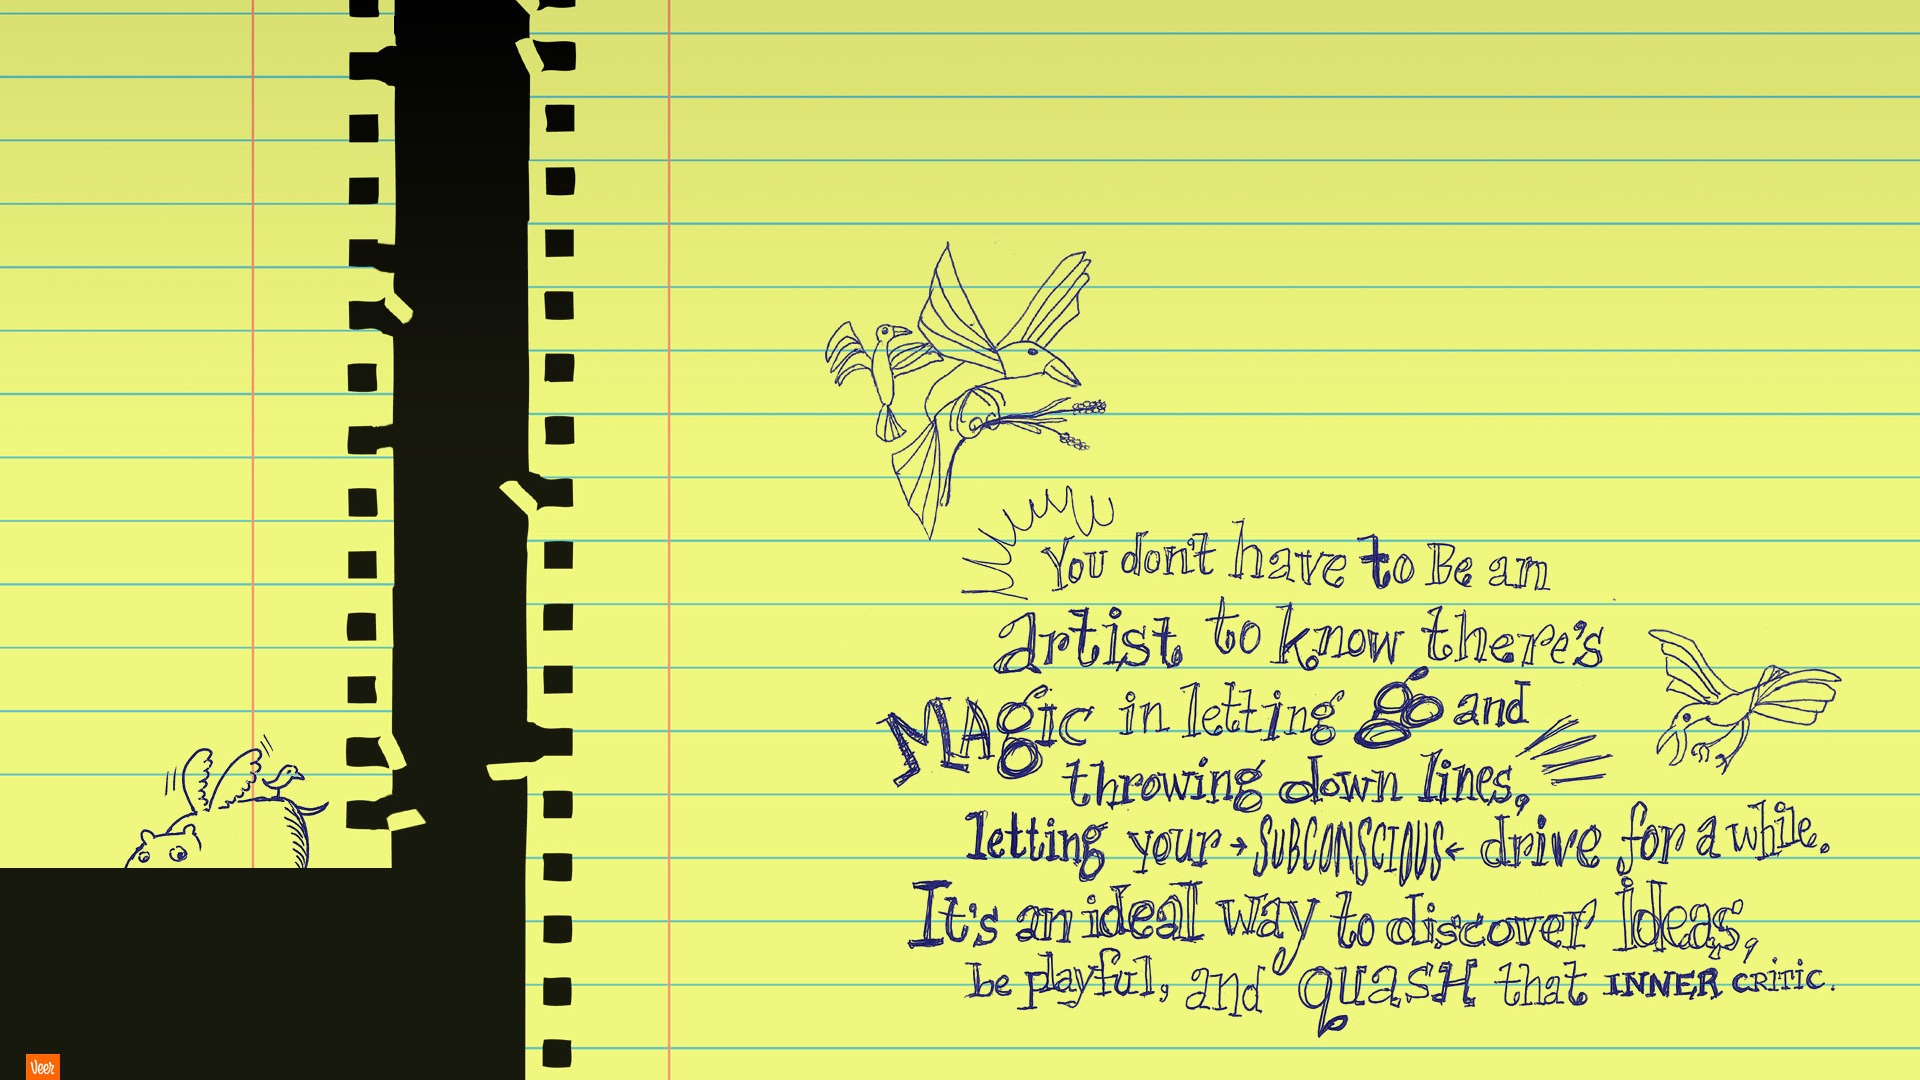 You don't have to Be an
artist to know there's
MAgic in letting go and
throwing down lines,
letting your → SUBCONSCIOUS ← drive for a while.
It's an ideal way to discover Ideas,
be playful, and quasH that INNER CRiTiC.
Veer